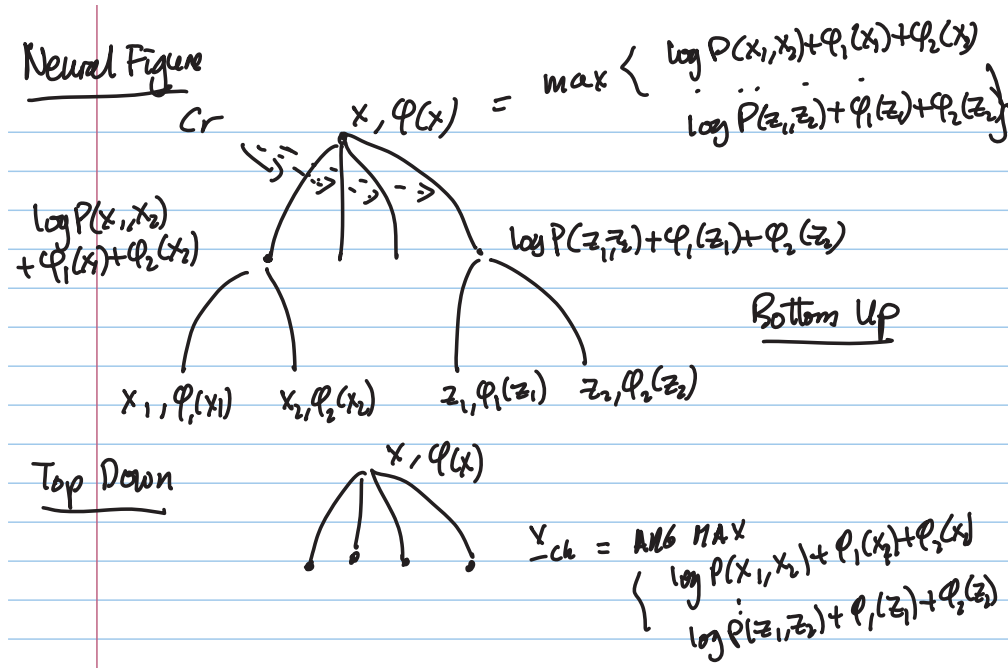 Neural Figure
max { log P(x₁,x₂)+φ₁(x₁)+φ₂(x₂)
log P(z₁,z₂)+φ₁(z₁)+φ₂(z₂) }
Cr
x, φ(x) =
log P(x₁,x₂)
+φ₁(x₁)+φ₂(x₂)
log P(z₁,z₂)+φ₁(z₁)+φ₂(z₂)
Bottom Up
x₁, φ₁(x₁) x₂, φ₂(x₂) z₁, φ₁(z₁) z₂, φ₂(z₂)
Top Down
x, φ(x)
x_ch = ARG MAX
{ log P(x₁,x₂)+φ₁(x₂)+φ₂(x₂)
log P(z₁,z₂)+φ₁(z₁)+φ₂(z₂)